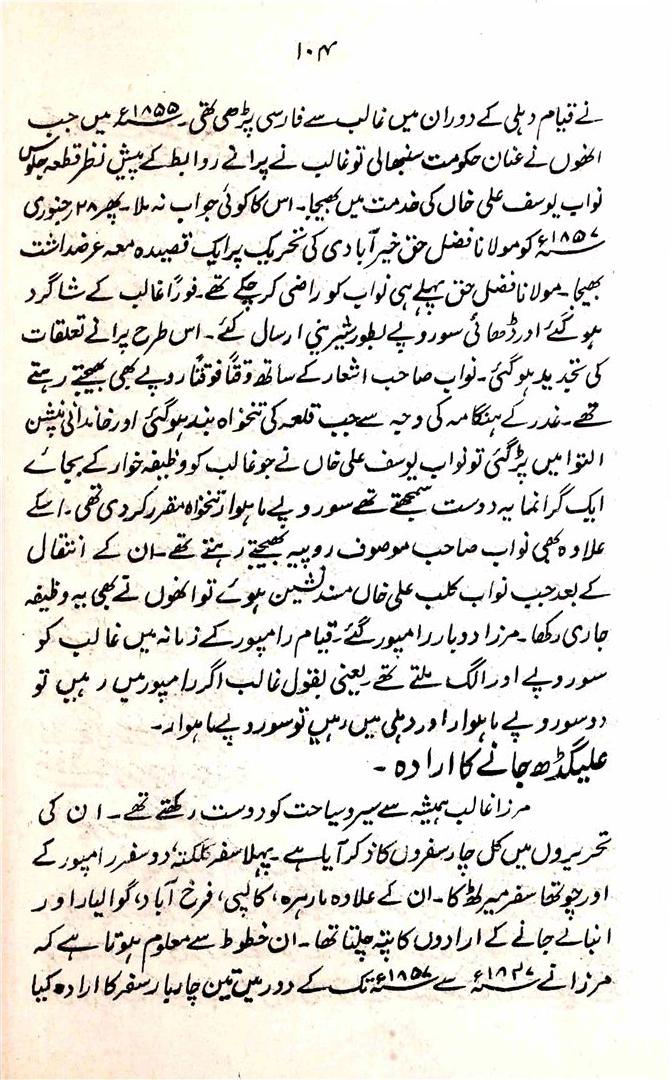 ۱۰۴
نے قیام دہلی کے دوران میں غالب سے فارسی پڑھی تھی۔ ۱۸۵۵ء میں جب
انھوں نے عنان حکومت سنبھالی تو غالب نے پرانے روابط کے پیش نظر قطعہ جلوس
نواب یوسف علی خاں کی خدمت میں بھیجا۔ اس کا کوئی جواب نہ ملا۔ پھر ۲۸ جنوری
۱۸۵۷ء کو مولانا فضل حق خیرآبادی کی تحریک پر ایک قصیدہ معہ عرضداشت
بھیجا۔ مولانا فضل حق پہلے ہی نواب کو راضی کر چکے تھے۔ فوراً غالب کے شاگرد
ہو گئے اور ڈھائی سو روپے بطور شیرینی ارسال کئے۔ اس طرح پرانے تعلقات
کی تجدید ہو گئی۔ نواب صاحب اشعار کے ساتھ وقتاً فوقتاً روپے بھی بھیجتے رہتے
تھے۔ غدر کے ہنگامہ کی وجہ سے جب قلعہ کی تنخواہ بند ہو گئی اور خاندانی پنشن
التوا میں پڑ گئی تو نواب یوسف علی خاں نے جو غالب کو وظیفہ خوار کے بجائے
ایک گرانمایہ دوست سمجھتے تھے سو روپے ماہوار تنخواہ مقرر کر دی تھی۔ اسکے
علاوہ بھی نواب صاحب موصوف روپیہ بھیجتے رہتے تھے۔ ان کے انتقال
کے بعد جب نواب کلب علی خاں مسند نشین ہوئے تو انھوں نے بھی یہ وظیفہ
جاری رکھا۔ مرزا دوبار رامپور گئے۔ قیام رامپور کے زمانہ میں غالب کو
سو روپے اور الگ ملتے تھے۔ یعنی بقول غالب اگر رامپور میں رہیں تو
دو سو روپے ماہوار اور دہلی میں رہیں تو سو روپے ماہوار۔
علیگڈھ جانے کا ارادہ۔
مرزا غالب ہمیشہ سے سیر و سیاحت کو دوست رکھتے تھے۔ ان کی
تحریروں میں کل چار سفروں کا ذکر آیا ہے۔ پہلا سفر کلکتہ، دو سفر رامپور کے
اور چوتھا سفر میرٹھ کا۔ ان کے علاوہ مارہرہ، کالپی، فرخ آباد، گوالیار اور
انبالے جانے کے ارادوں کا پتہ چلتا تھا۔ ان خطوط سے معلوم ہوتا ہے کہ
مرزا نے ۱۸۴۷ء سے ۱۸۵۷ء تک کے دور میں تین چار بار سفر کا ارادہ کیا